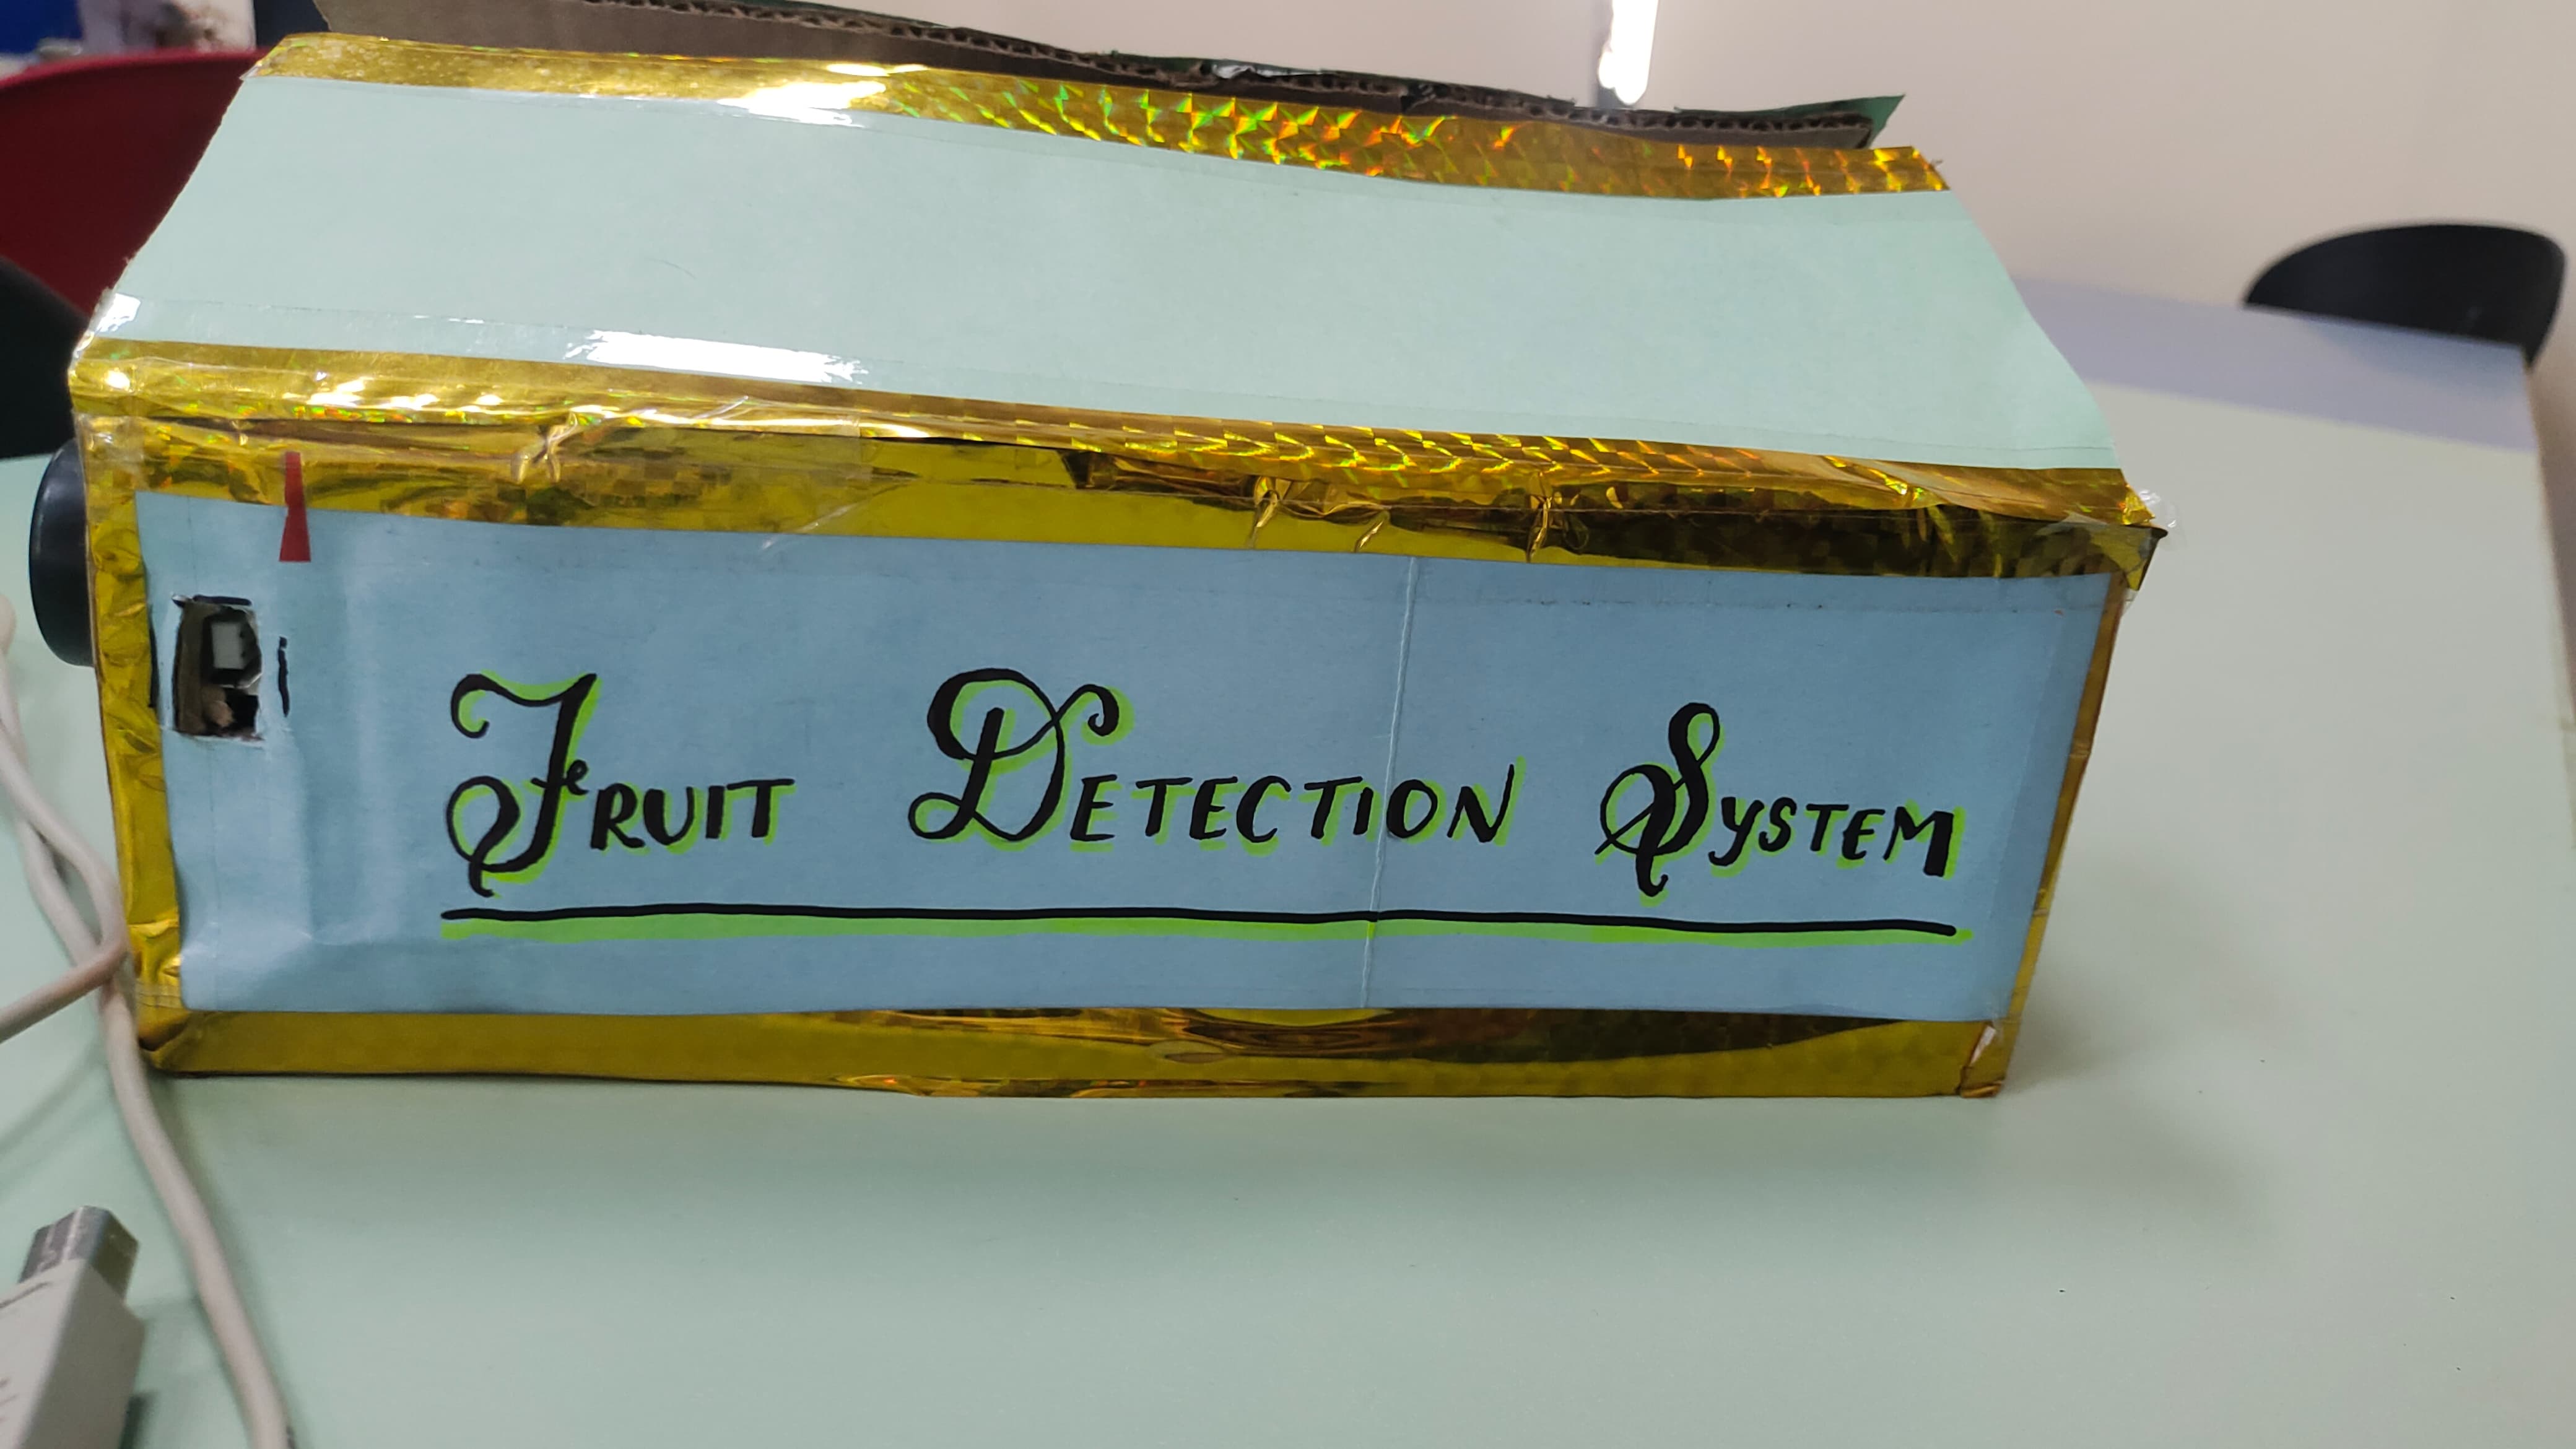 Fruit Detection System